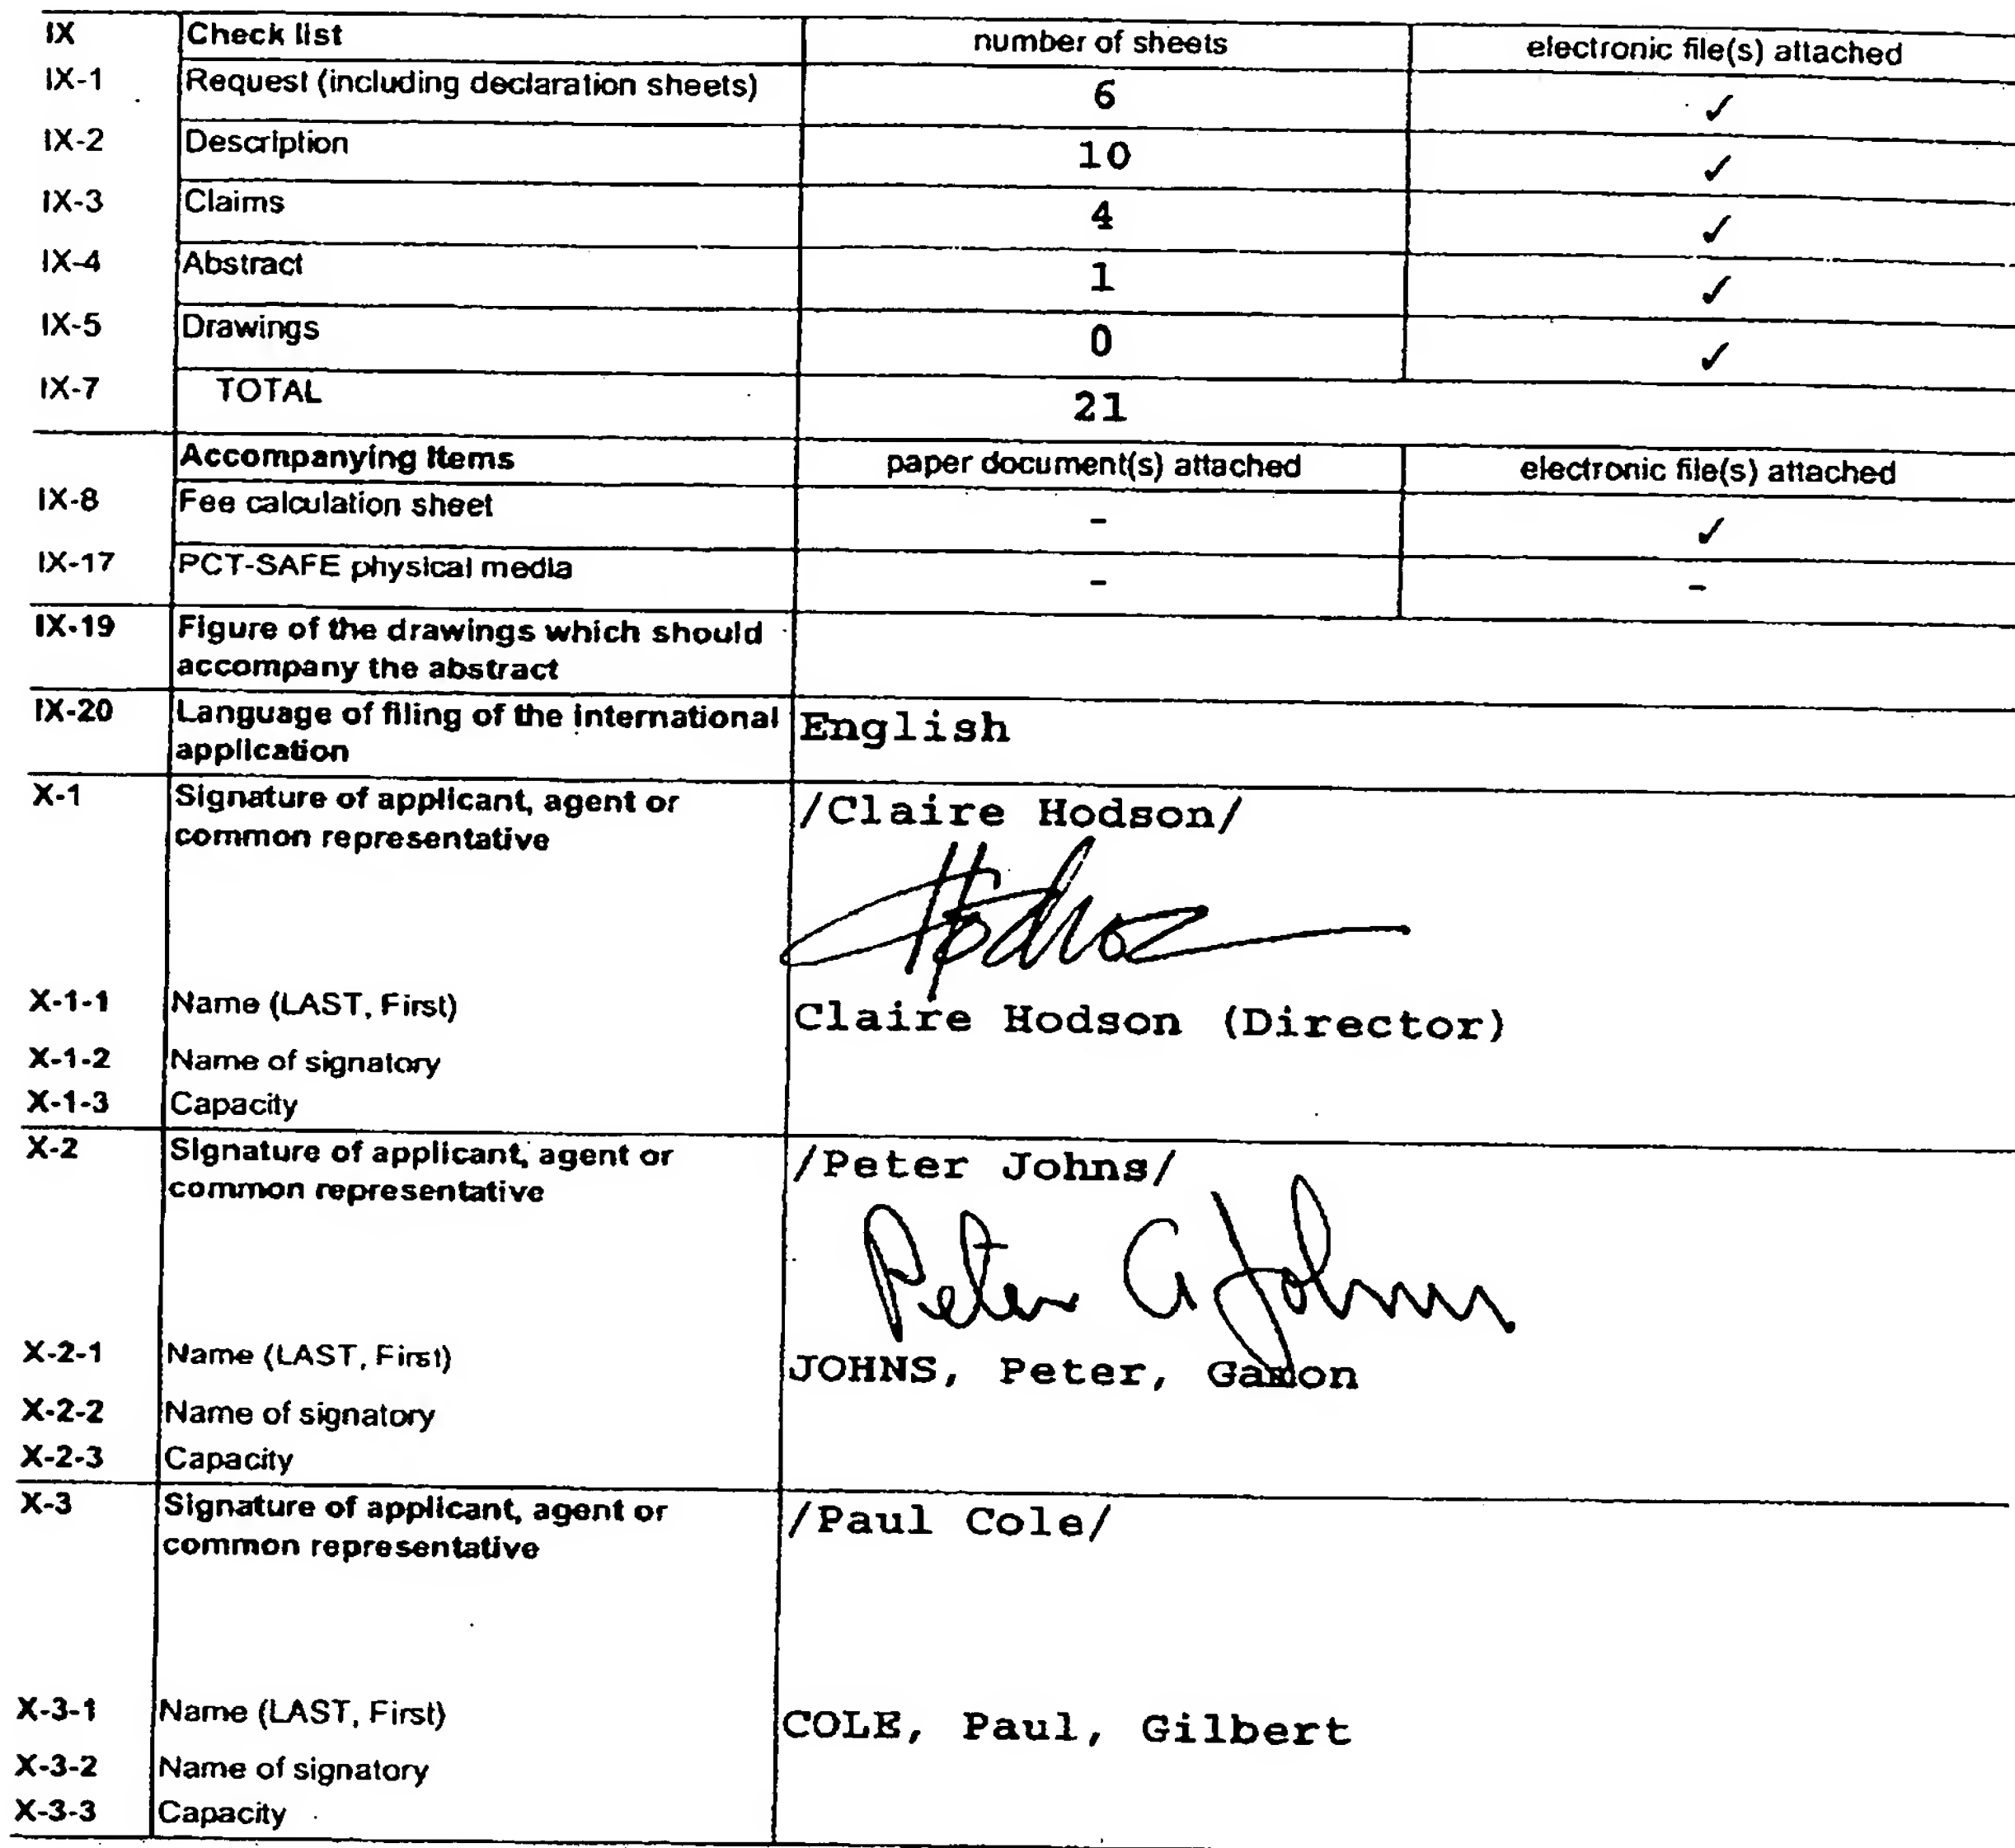 IX Check list number of sheets electronic file(s) attached
IX-1 Request (including declaration sheets) 6 ✓
IX-2 Description 10 ✓
IX-3 Claims 4 ✓
IX-4 Abstract 1 ✓
IX-5 Drawings 0 ✓
IX-7 TOTAL 21
Accompanying Items paper document(s) attached electronic file(s) attached
IX-8 Fee calculation sheet - ✓
IX-17 PCT-SAFE physical media - -
IX-19 Figure of the drawings which should
accompany the abstract
IX-20 Language of filing of the international English
application
X-1 Signature of applicant, agent or /Claire Hodson/
common representative
Hodson
X-1-1 Name (LAST, First) Claire Hodson (Director)
X-1-2 Name of signatory
X-1-3 Capacity
X-2 Signature of applicant, agent or /Peter Johns/
common representative
Peter G Johns
X-2-1 Name (LAST, First) JOHNS, Peter,
X-2-2 Name of signatory
X-2-3 Capacity
X-3 Signature of applicant, agent or /Paul Cole/
common representative
X-3-1 Name (LAST, First) COLE, Paul, Gilbert
X-3-2 Name of signatory
X-3-3 Capacity